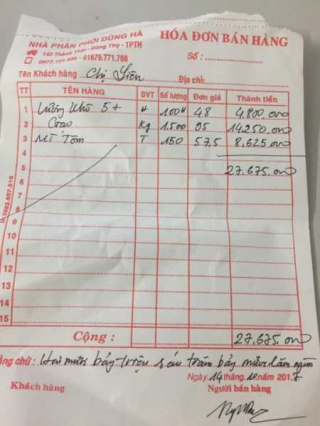 NHÀ PHÂN PHỐI DŨNG HÀ
HÓA ĐƠN BÁN HÀNG
142 Thành Thái - Đông Thọ - TPTH
01678.771.788
Số :
Tên Khách hàng : Chị Liên Địa chỉ:
TT TÊN HÀNG ĐVT Số lượng Đơn giá Thành tiền
1 Lường Khô 5+ 100 48 4.800.000
2 Kg 1.500 95 14250.000
3 Mì Tôm T 150 57,5 8.625.000
4
5 27.675.000
6
7
8
9
10
11
12
13
14
15
Cộng : 27.675.000
bằng chữ : Hai mươi bảy triệu sáu trăm bảy mươi lăm ngìn
Ngày 14 tháng 10 năm 2017
Khách hàng Người bán hàng